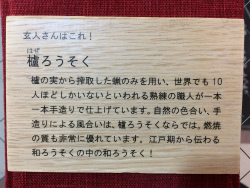 玄人さんはこれ！
はぜ
櫨ろうそく
櫨の実から搾取した蝋のみを用い、世界でも10
人ほどしかいないといわれる熟練の職人が一本
一本手造りで仕上げています。自然の色合い、手
造りによる風合いは、櫨ろうそくならでは。燃焼
の質も非常に優れています。江戸期から伝わる
和ろうそくの中の和ろうそく！